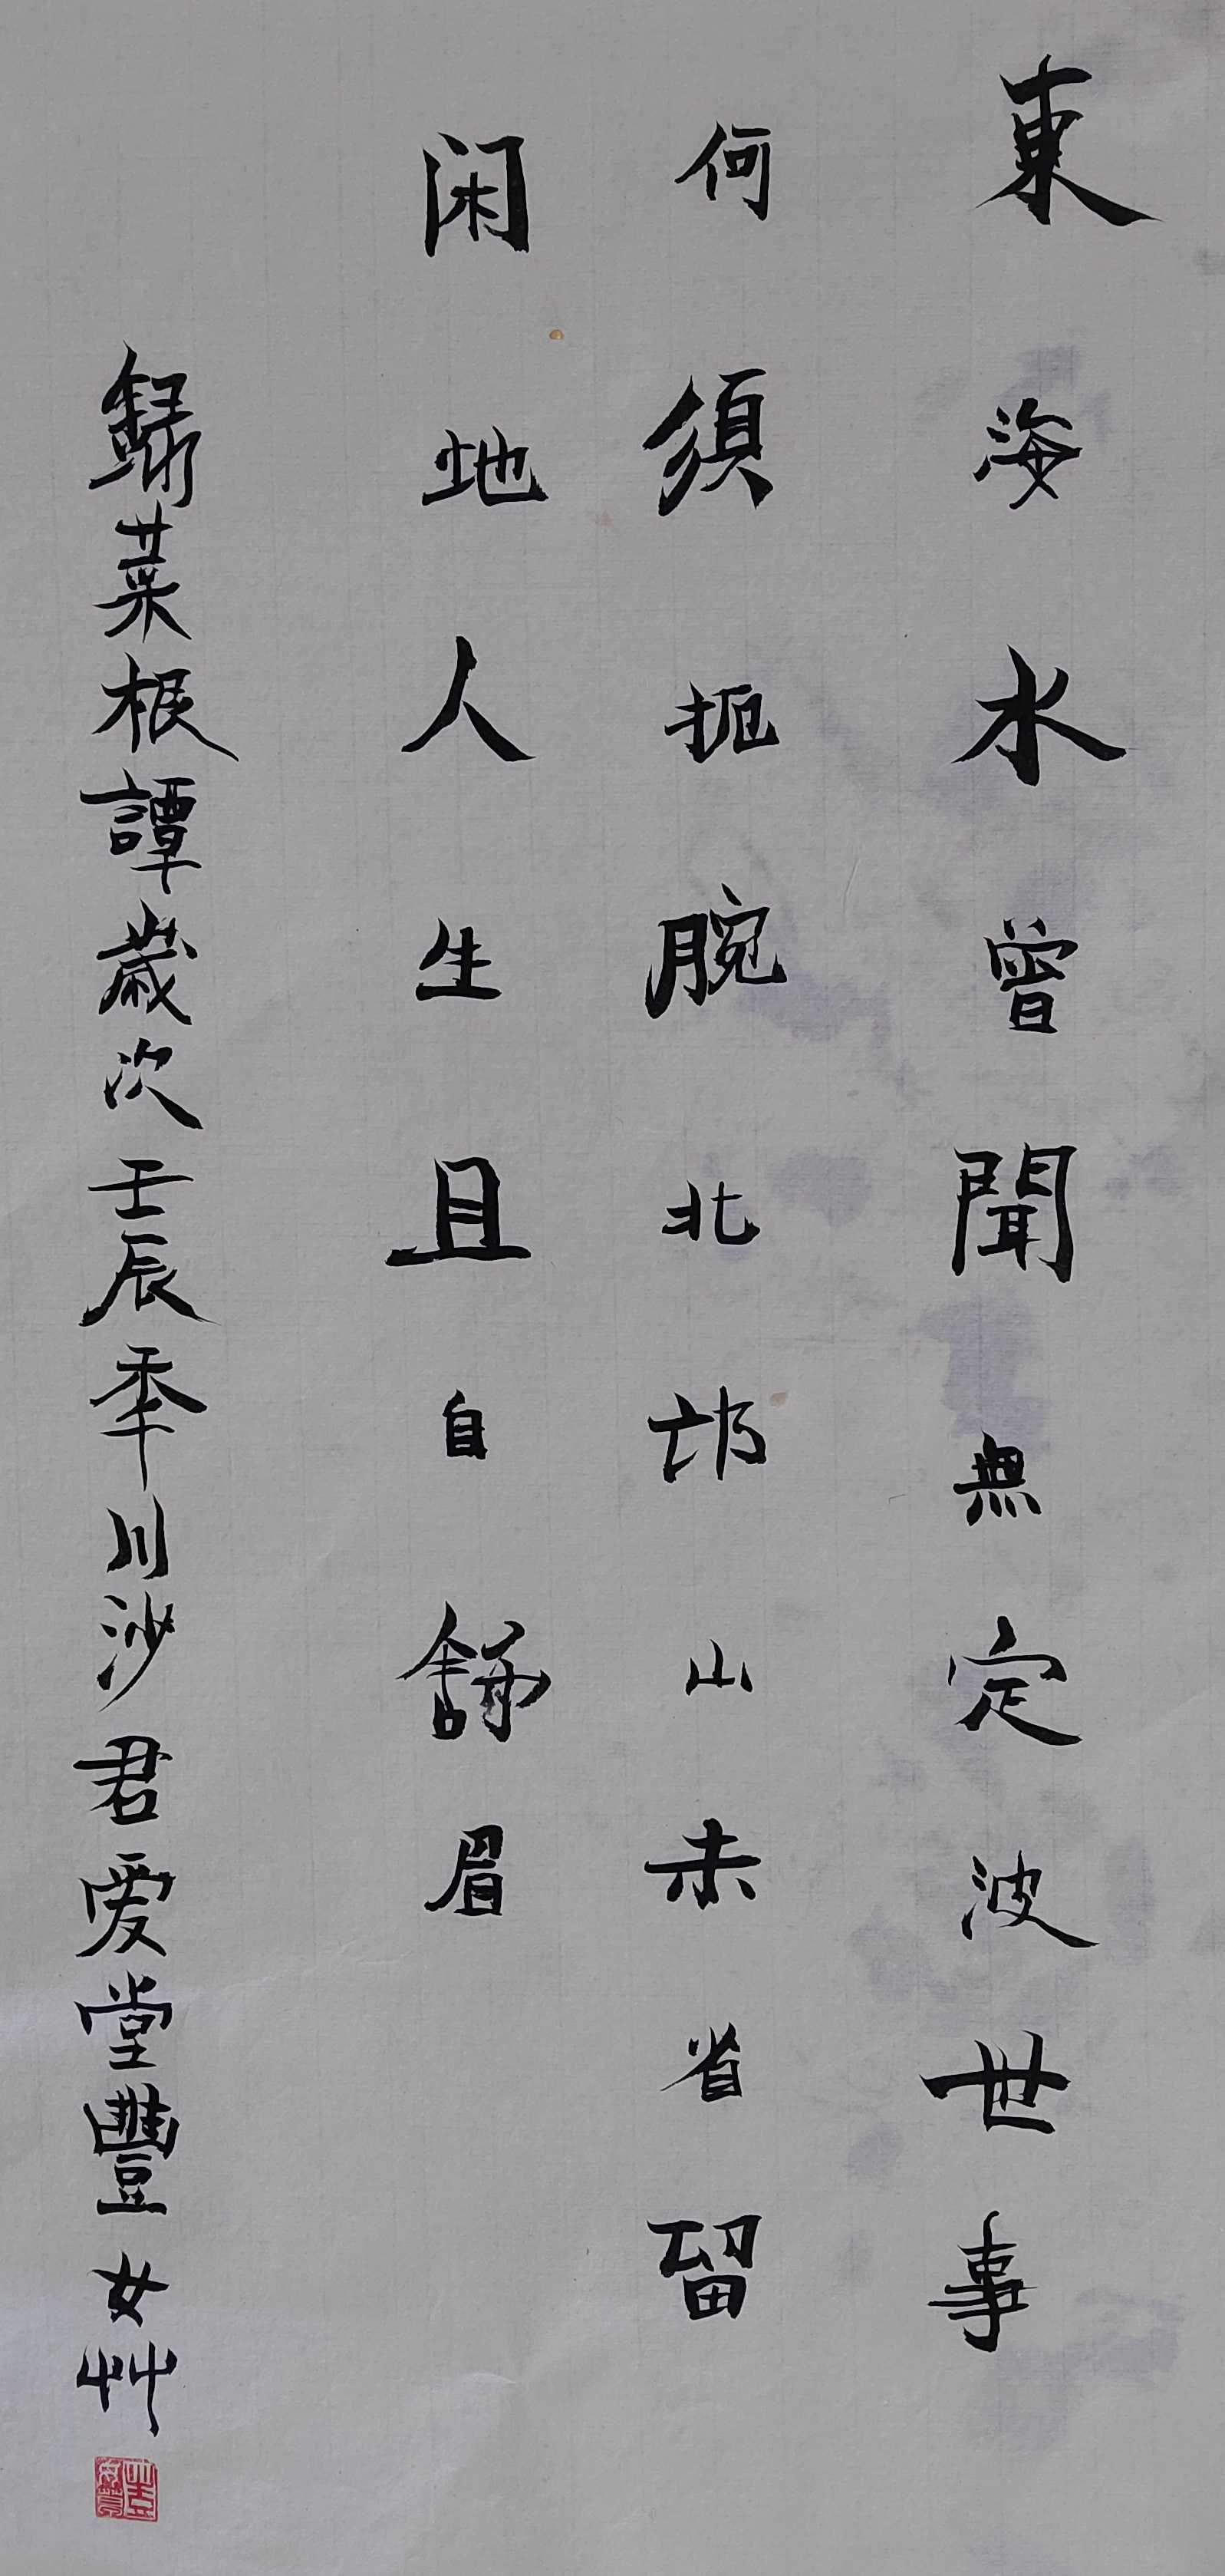 東海水曾聞無定波世事
何須扼腕北邙山未省留
闲地人生且自舒眉
錄菜根譚歲次壬辰季川沙君爱堂豐女艸